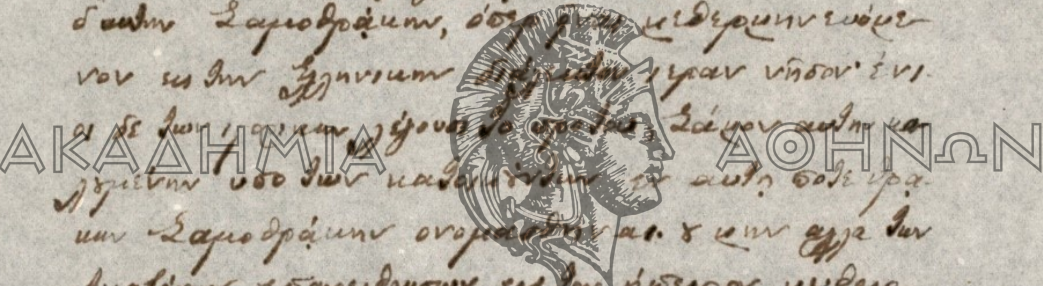 δαυτην Σαμοθράκην, όπερ εςι μεθερμηνευόμε-
νον εις την Ελληνικην διάλεκτον ιεραν νῆσον· ένι-
οι δε των ιςορικων λέγουσι το προτου Σάμον αυτην κα-
λȣμένην υπο των κατοικȣντων εν αυτη ποτε θρα-
κων Σαμοθράκην ονομασθηναι. ȣ μην αλλα των
ΑΚΑΔΗΜΙΑ ΑΘΗΝΩΝ